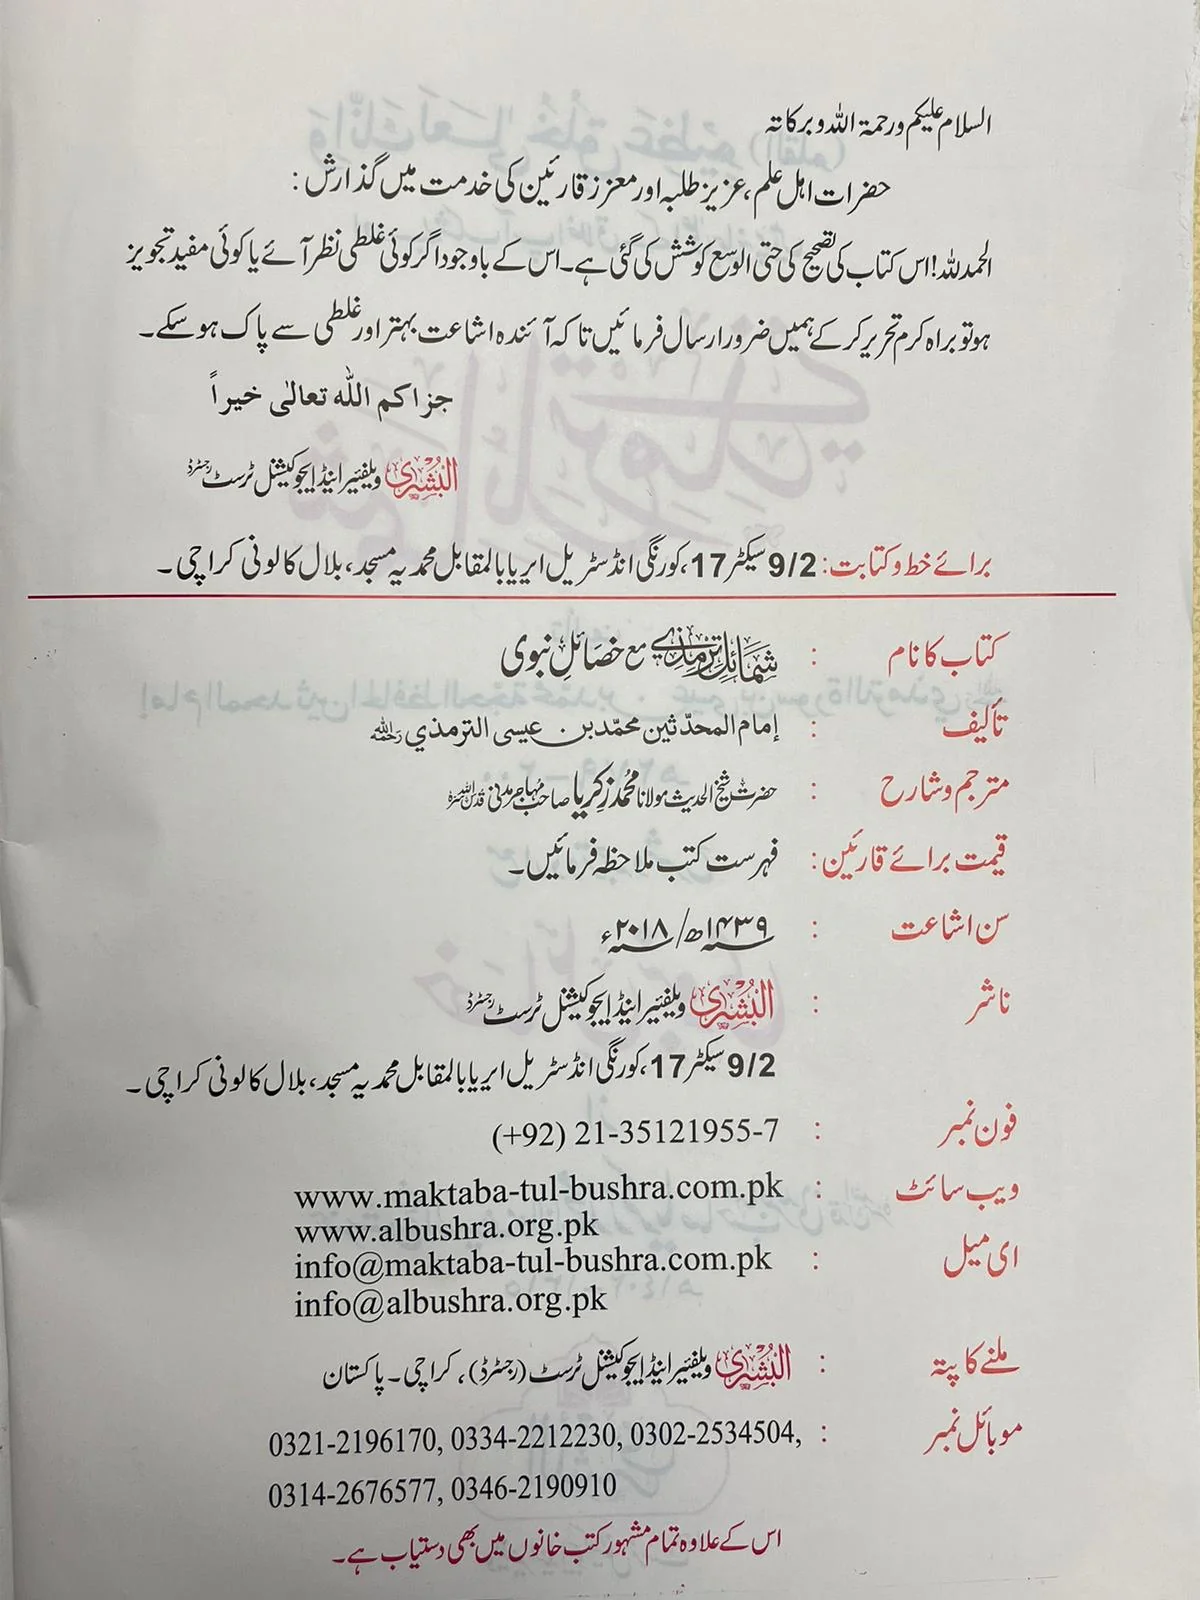 السلام علیکم ورحمۃ اللہ وبرکاتہ
حضرات اہل علم، عزیز طلبہ اور معزز قارئین کی خدمت میں گذارش:
الحمد للہ! اس کتاب کی تصحیح کی حتی الوسع کوشش کی گئی ہے۔ اس کے باوجود اگر کوئی غلطی نظر آئے یا کوئی مفید تجویز
ہو تو براہ کرم تحریر کر کے ہمیں ضرور ارسال فرمائیں تاکہ آئندہ اشاعت بہتر اور غلطی سے پاک ہو سکے۔
جزاکم اللہ تعالیٰ خیراً
البُشریٰ ویلفیئر اینڈ ایجوکیشنل ٹرسٹ رجسٹرڈ
برائے خط وکتابت: 9/2 سیکٹر 17، کورنگی انڈسٹریل ایریا بالمقابل محمدیہ مسجد، بلال کالونی کراچی۔
کتاب کا نام : شمائل ترمذي مع خصائلِ نبوی
تألیف : إمام المحدّثین محمّد بن عیسی الترمذي رحمہ اللہ
مترجم وشارح : حضرت شیخ الحدیث مولانا محمد زکریا صاحب مہاجر مدنی قدس اللہ سرہ
قیمت برائے قارئین: فہرست کتب ملاحظہ فرمائیں۔
سن اشاعت : ۱۴۳۹ھ/ ۲۰۱۸ء
ناشر : البُشریٰ ویلفیئر اینڈ ایجوکیشنل ٹرسٹ رجسٹرڈ
9/2 سیکٹر 17، کورنگی انڈسٹریل ایریا بالمقابل محمدیہ مسجد، بلال کالونی کراچی۔
فون نمبر : (+92) 21-35121955-7
ویب سائٹ : www.maktaba-tul-bushra.com.pk
www.albushra.org.pk
ای میل : info@maktaba-tul-bushra.com.pk
info@albushra.org.pk
ملنے کا پتہ : البُشریٰ ویلفیئر اینڈ ایجوکیشنل ٹرسٹ (رجسٹرڈ)، کراچی۔ پاکستان
موبائل نمبر : 0321-2196170, 0334-2212230, 0302-2534504,
0314-2676577, 0346-2190910
اس کے علاوہ تمام مشہور کتب خانوں میں بھی دستیاب ہے۔